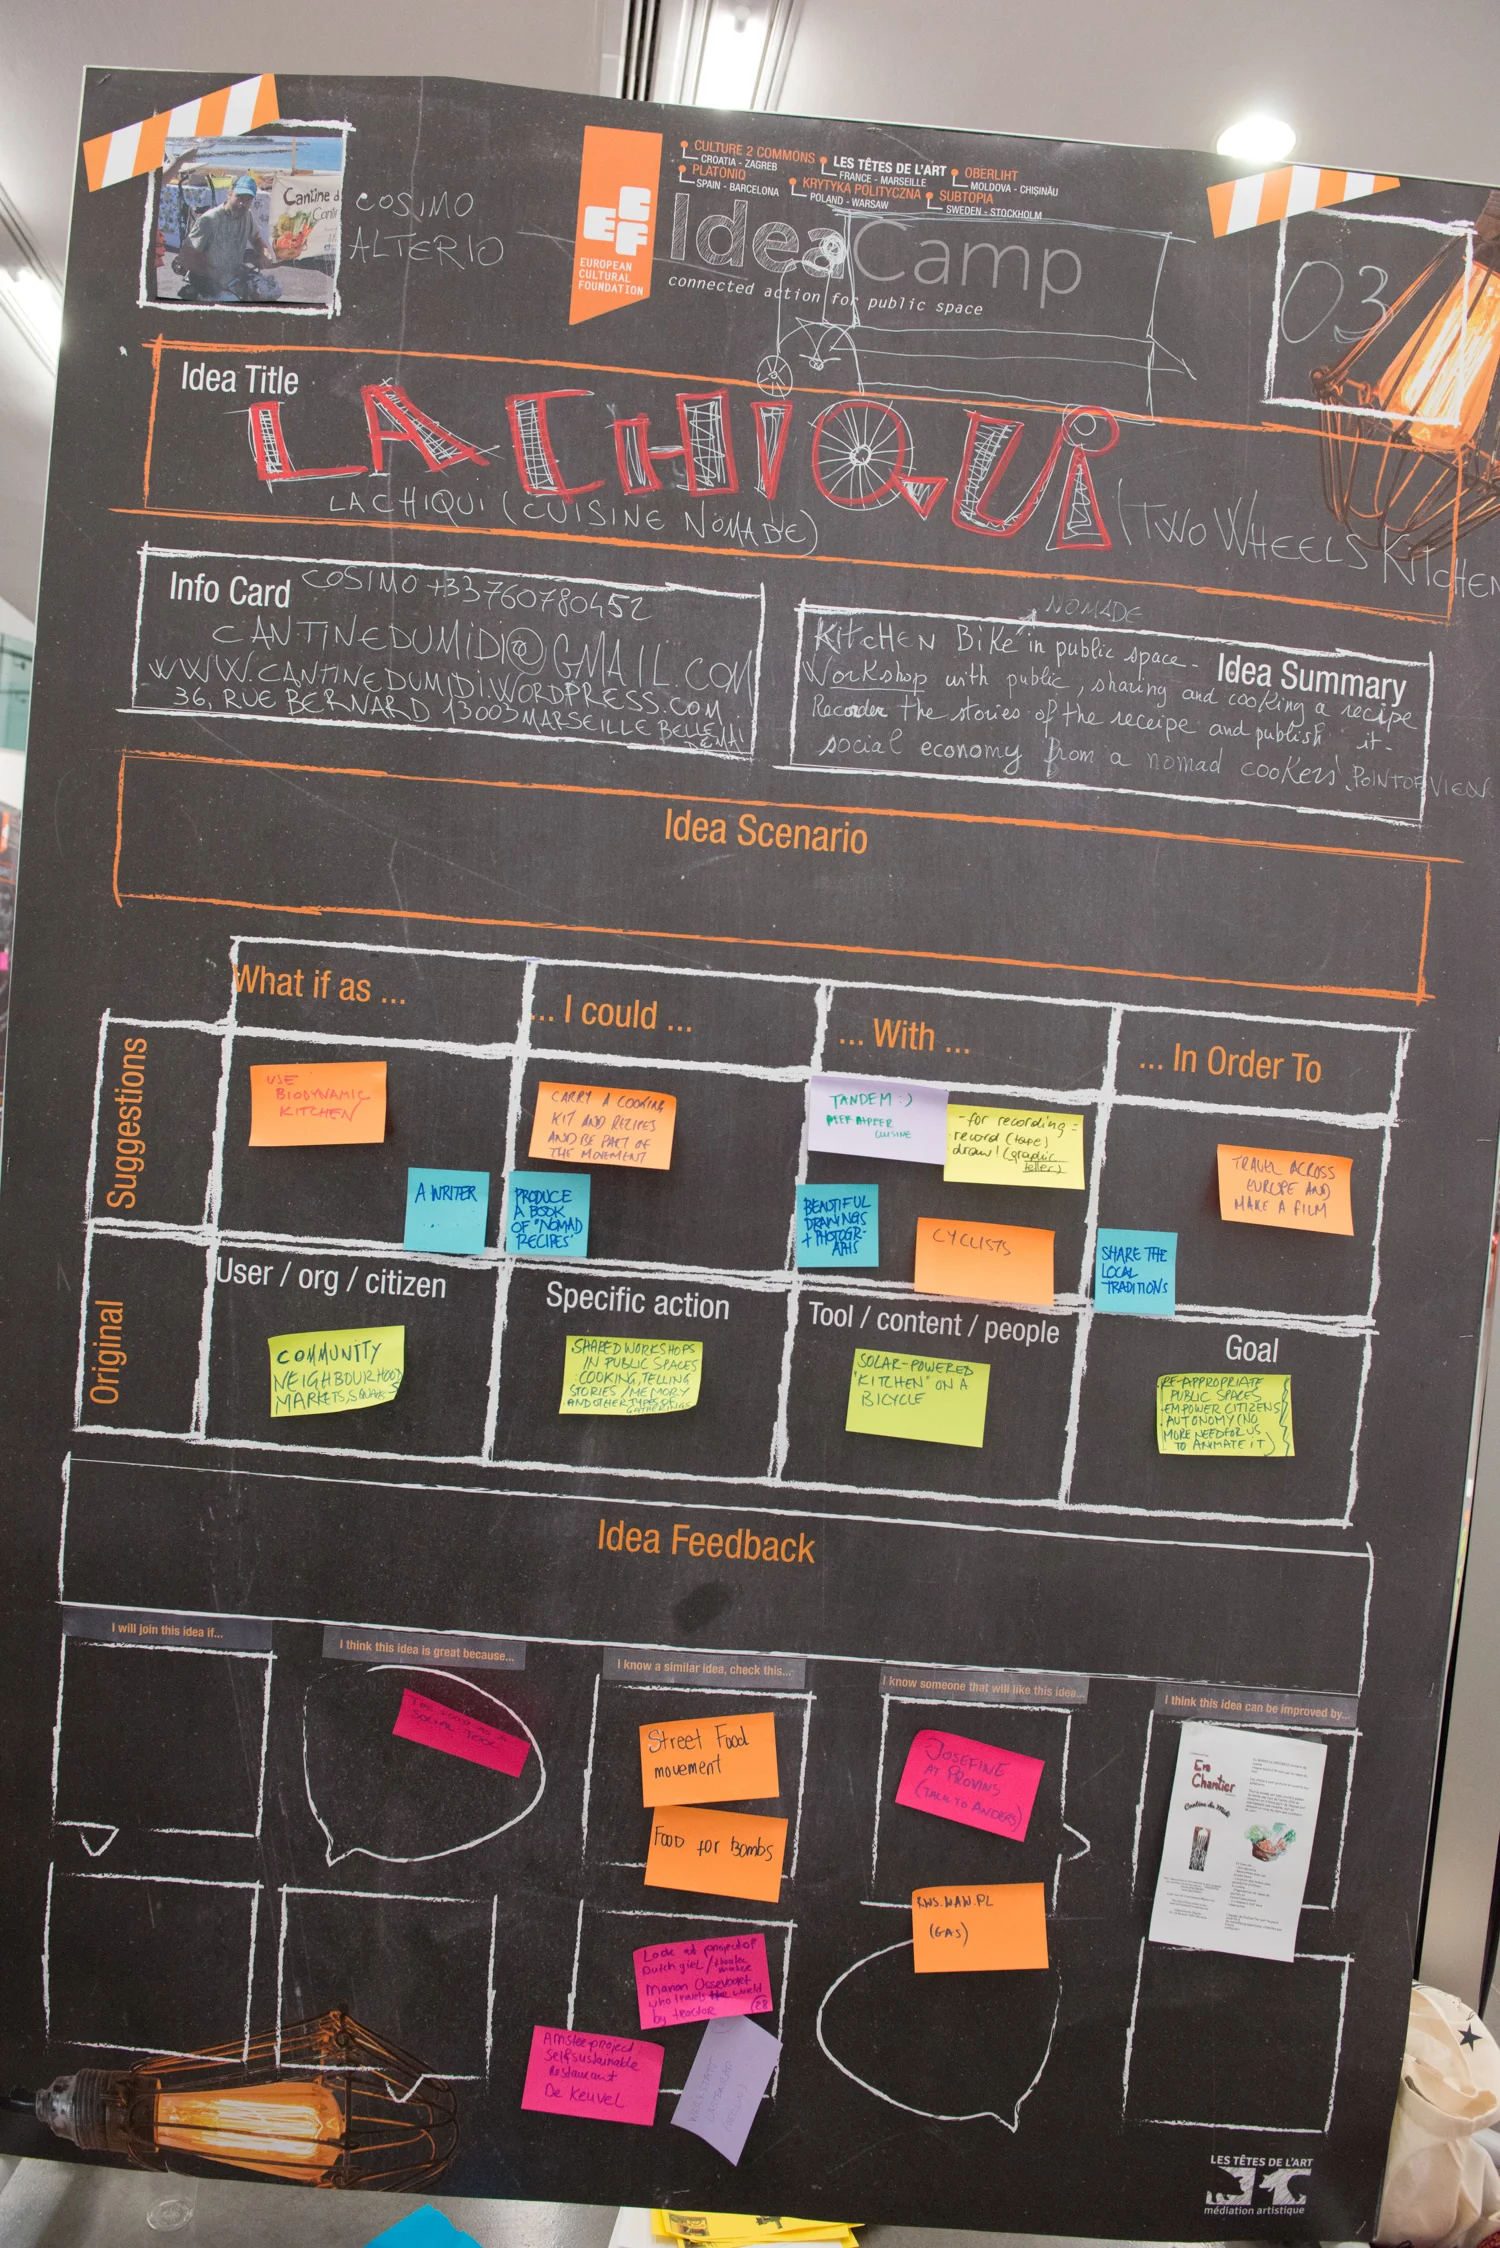 Cantine d
COSIMO
ALTERIO
EUROPEAN
CULTURAL
FOUNDATION
CULTURE 2 COMMONS
CROATIA - ZAGREB
PLATONIQ
SPAIN - BARCELONA
LES TÊTES DE L'ART
FRANCE - MARSEILLE
KRYTYKA POLITYCZNA
POLAND - WARSAW
OBERLIHT
MOLDOVA - CHIȘINĂU
SUBTOPIA
SWEDEN - STOCKHOLM
IdeaCamp
connected action for public space
03
Idea Title
LA CHIQUI
LA CHIQUI (CUISINE NOMADE)
(TWO WHEELS KITCHEN
Info Card
COSIMO +33760780452
CANTINEDUMIDI@GMAIL.COM
WWW.CANTINEDUMIDI.WORDPRESS.COM
36, RUE BERNARD 13003 MARSEILLE BELLE
DE MAI
Idea Summary
NOMADE
KitcHEN BiKe in public space -
Workshop with public, sharing and cooking a recipe
Recorder the stories of the receipe and publish it -
social economy from a nomad cookers' POINT OF VIEW
Idea Scenario
What if as ...
... I could ...
... With ...
... In Order To
Suggestions
USE
BIODYNAMIC
KITCHEN
A WRITER
CARRY A COOKING
KIT AND RECIPES
AND BE PART OF
THE MOVEMENT
PRODUCE
A BOOK
OF "NOMAD
RECIPES"
TANDEM :)
CUISINE
- for recording -
record (tape)
draw! (graphic
teller)
BEAUTIFUL
DRAWINGS
+ PHOTOGR-
APHS
CYCLISTS
TRAVEL ACROSS
EUROPE AND
MAKE A FILM
SHARE THE
LOCAL
TRADITIONS
Original
User / org / citizen
Specific action
Tool / content / people
Goal
COMMUNITY
NEIGHBOURHOOD
MARKETS, SQUARES
SHARED WORKSHOPS
IN PUBLIC SPACES
COOKING, TELLING
STORIES / MEMORY
AND OTHER TYPES OF
GATHERINGS
SOLAR-POWERED
"KITCHEN" ON A
BICYCLE
RE-APPROPRIATE
PUBLIC SPACES
EMPOWER CITIZENS
AUTONOMY (NO
MORE NEED FOR US
TO ANIMATE IT)
Idea Feedback
I will join this idea if...
I think this idea is great because...
I know a similar idea, check this...
I know someone that will like this idea...
I think this idea can be improved by...
THE FOOD AS A
SOCIAL TOOL
Street Food
movement
Food for Bombs
JOSEFINE
AT PROVINS
(TALK TO ANDERS)
(GAS)
En
Chantier
Cantine du Midi
Look at project of
Dutch girl / theater
maker
Manon Ossevoort
who travels the world
by tractor
28
project
Selfsustainable
Restaurant
De Keuvel
LES TÊTES DE L'ART
médiation artistique